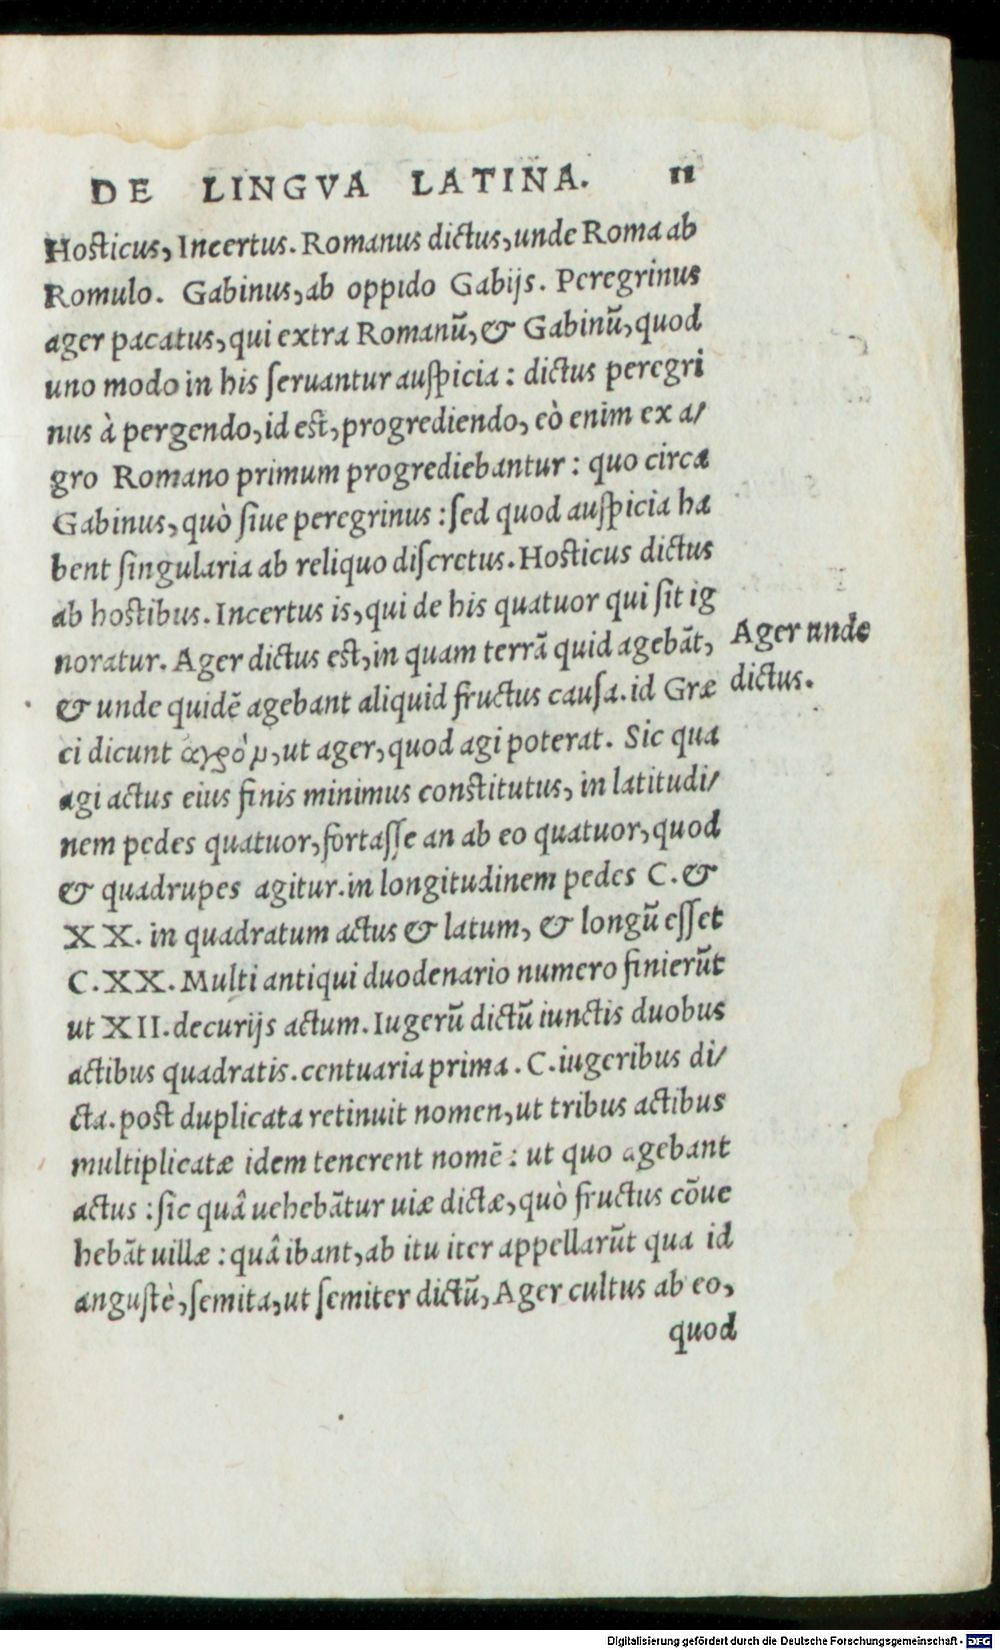 DE LINGVA LATINA. 11
Hosticus, Incertus. Romanus dictus, unde Roma ab
Romulo. Gabinus, ab oppido Gabijs. Peregrinus
ager pacatus, qui extra Romanū, & Gabinū, quod
uno modo in his ſeruantur auſpicia: dictus peregri
nus à pergendo, id eſt, progrediendo, eò enim ex a/
gro Romano primum progrediebantur: quo circa
Gabinus, quò ſiue peregrinus: ſed quod auſpicia ha
bent ſingularia ab reliquo diſcretus. Hoſticus dictus
ab hoſtibus. Incertus is, qui de his quatuor qui ſit ig
noratur. Ager dictus eſt, in quam terrā quid agebāt,
Ager unde
& unde quidē agebant aliquid fructus cauſa. id Græ
dictus.
ci dicunt ἀγρὸμ, ut ager, quod agi poterat. Sic qua
agi actus eius finis minimus conſtitutus, in latitudi/
nem pedes quatuor, fortaſſe an ab eo quatuor, quod
& quadrupes agitur. in longitudinem pedes C. &
XX. in quadratum actus & latum, & longū eſſet
C. XX. Multi antiqui duodenario numero finierūt
ut XII. decurijs actum. Iugerū dictū iunctis duobus
actibus quadratis. centuaria prima. C. iugeribus di/
cta. poſt duplicata retinuit nomen, ut tribus actibus
multiplicatæ idem tenerent nomē: ut quo agebant
actus: ſic quâ uehebātur uiæ dictæ, quò fructus cōue
hebāt uillæ: quâ ibant, ab itu iter appellarūt qua id
anguſtè, ſemita, ut ſemiter dictū, Ager cultus ab eo,
quod
Digitalisierung gefördert durch die Deutsche Forschungsgemeinschaft - DFG